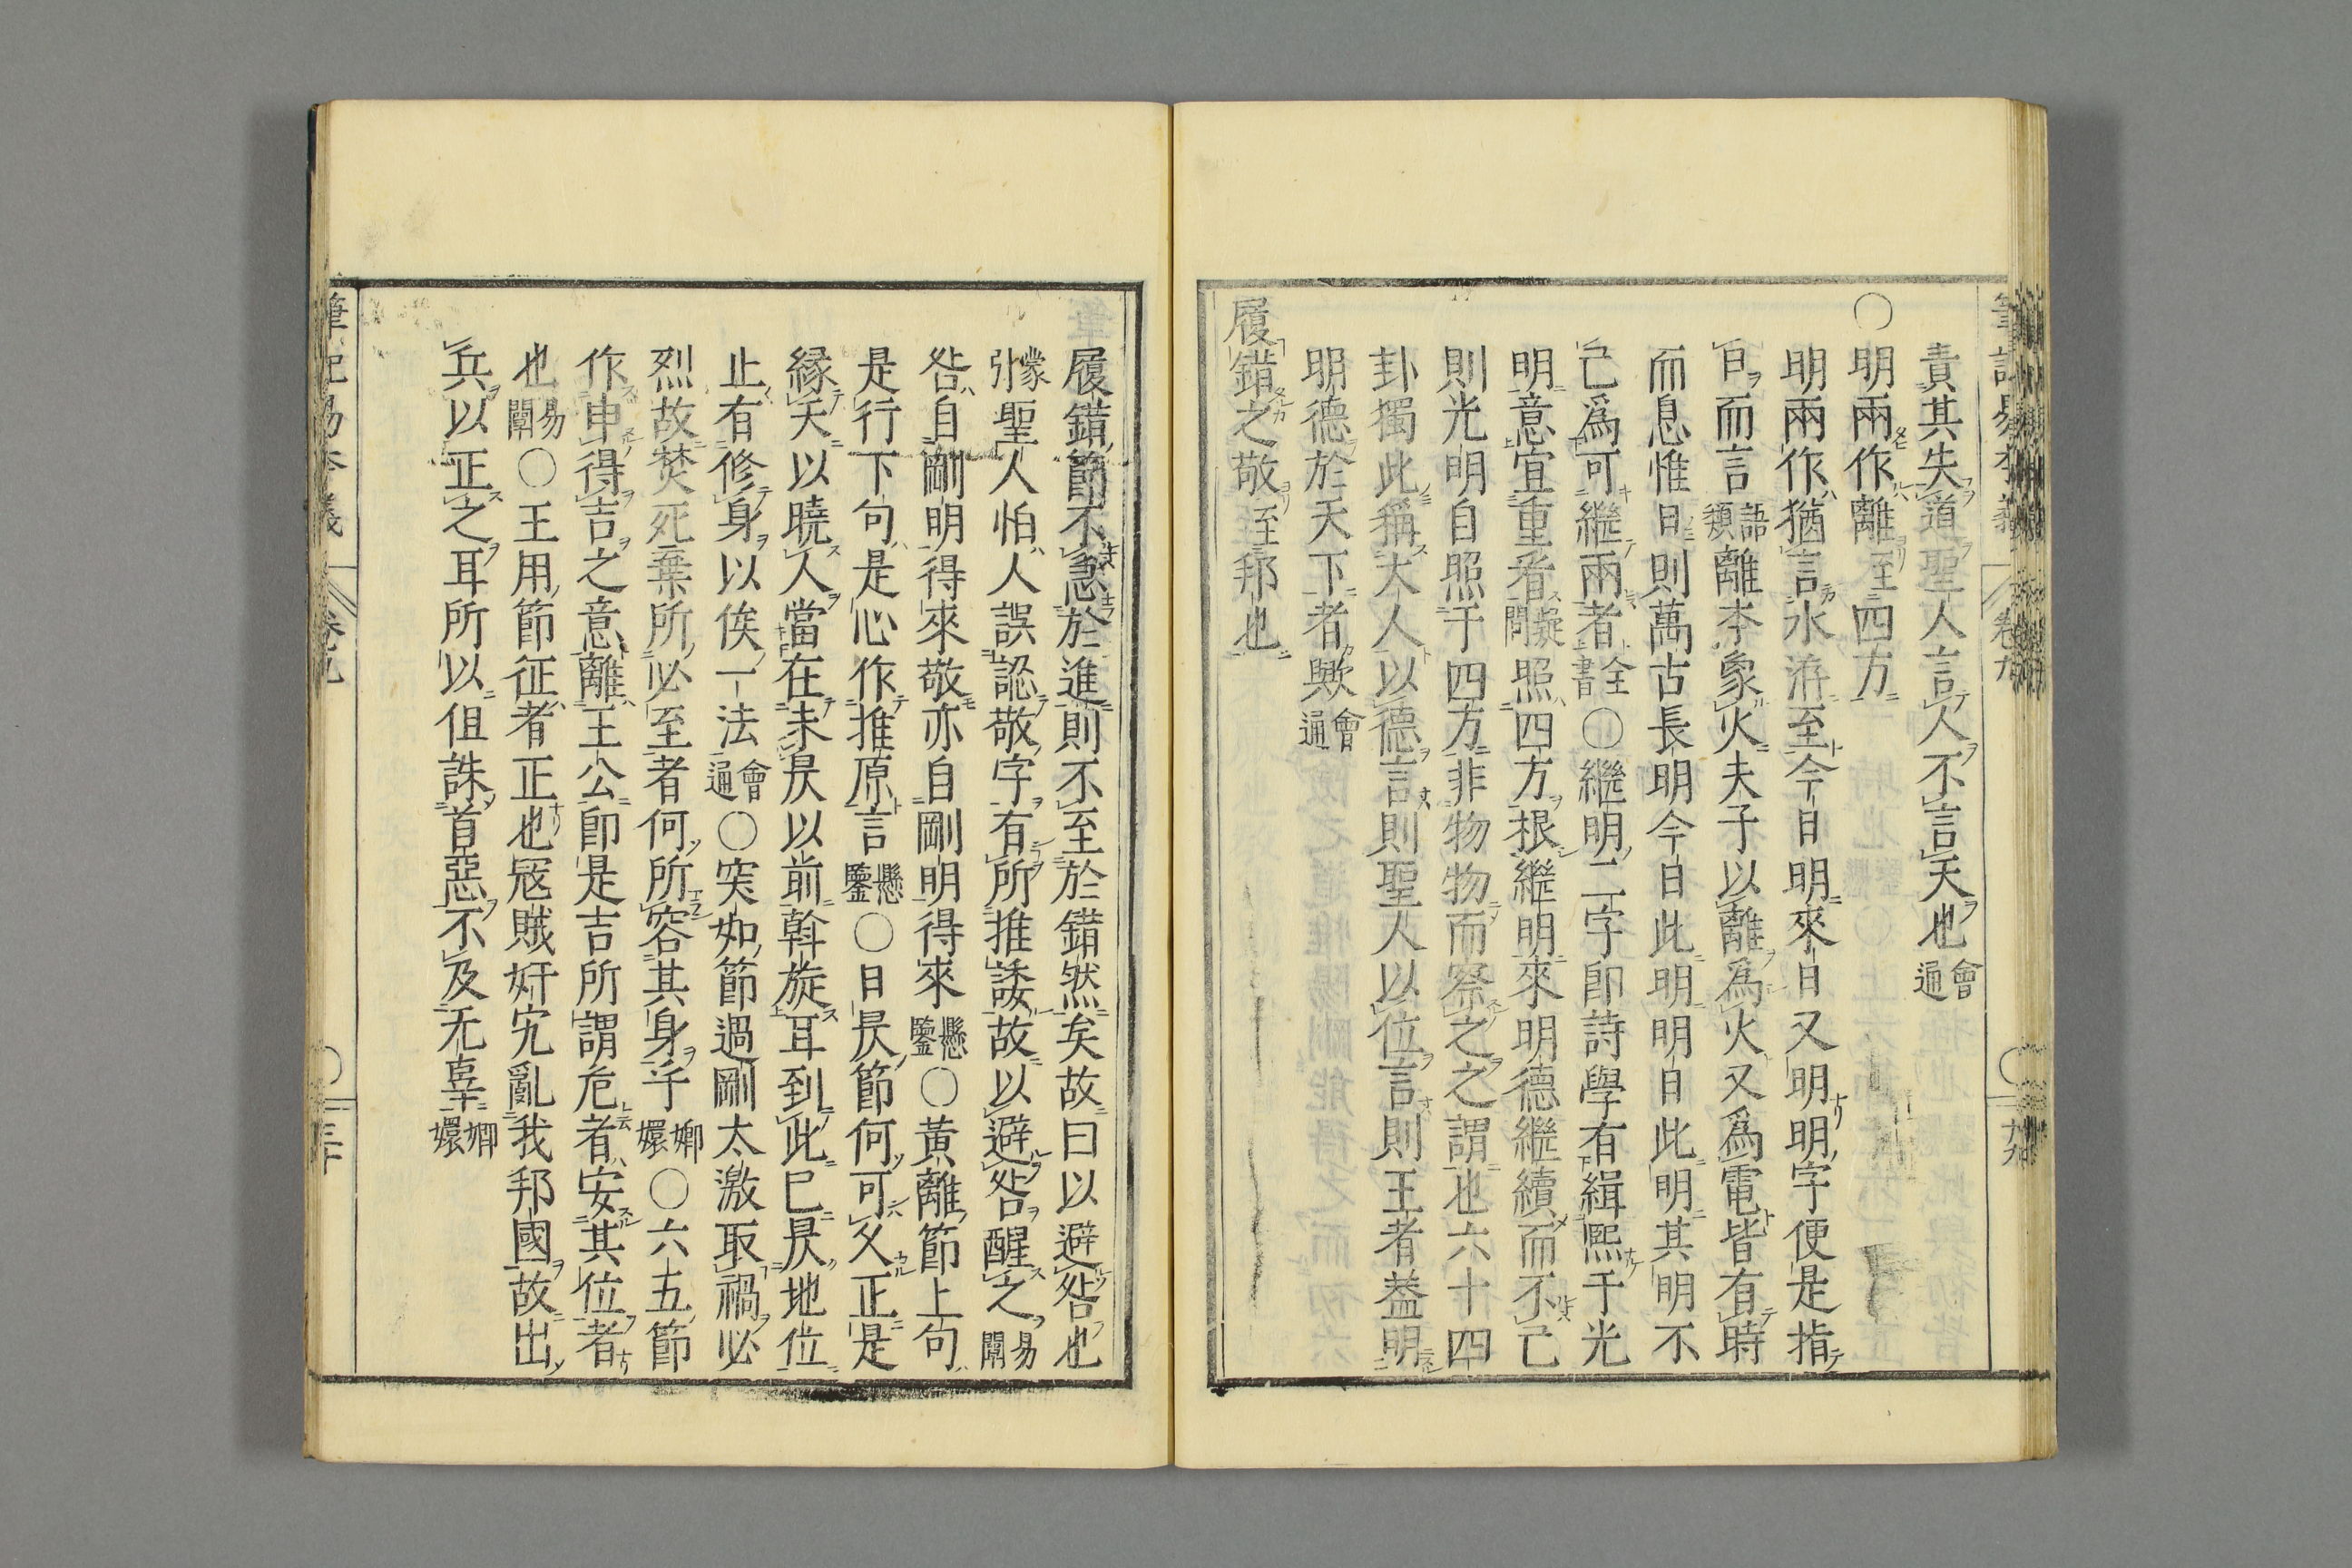 責其失道聖人言人不言天也會通
○明兩作離至四方
明兩作猶言水洊至今日明來日又明明字便是指
日而言語類離本象火夫子以離爲火又爲電皆有時
而息惟日則萬古長明今日此明明日此明其明不
已爲可繼兩者全書○繼明二字卽詩學有緝熙于光
明意宜重看疑問照四方根繼明來明德繼續而不已
則光明自照于四方非物物而察之之謂也六十四
卦獨此稱大人以德言則聖人以位言則王者益明
明德於天下者歟會通
履錯之敬至邦也
履錯節不急於進則不至於錯然矣故曰以避咎也
蒙引聖人怕人誤認敬字有所推諉故以避咎醒之易闡
咎自剛明得來敬亦自剛明得來懸鑒○黃離節上句
是行下句是心作推原言懸鑒○日昃節何可久正是
緣天以曉人當在未昃以前斡旋耳到此已昃地位
止有修身以俟一法會通○突如節過剛太激取禍必
烈故焚死棄所必至者何所容其身乎嫏嬛○六五節
作申得吉之意離王公卽是吉所謂危者安其位者
也易闡○王用節征者正也寇賊奸宄亂我邦國故出
兵以正之耳所以但誅首惡不及无辜嫏嬛